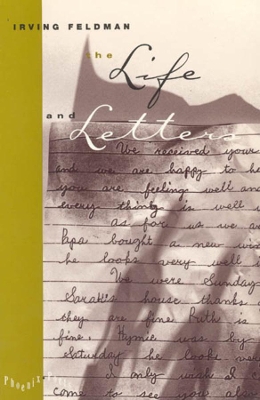 IRVING FELDMAN
the
Life
and
Letters
We received your
and we are happy to he
you are feeling well and
every thing is well w
as for us we ar
Papa bought a new win
he looks very well h
We were Sunday
Sarah's house thanks
they are fine Ruth is
fine. Hymie was by
Saturday he looks wer
I only wish I c
come to see you alo
Phoenix Poets